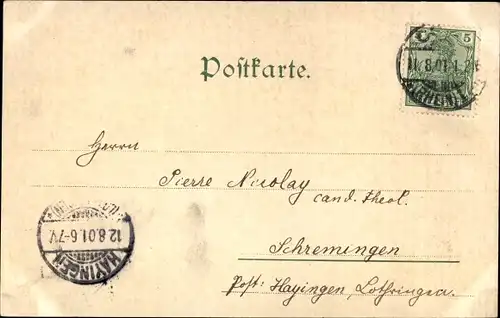 5
11.8.01.1-2N
(RHEIN)
Postkarte.
Herrn
Pierre Nicolay
cand. theol.
12.8.01.6-7V.
HAYINGEN
Schremingen
Post: Hayingen, Lothringen.